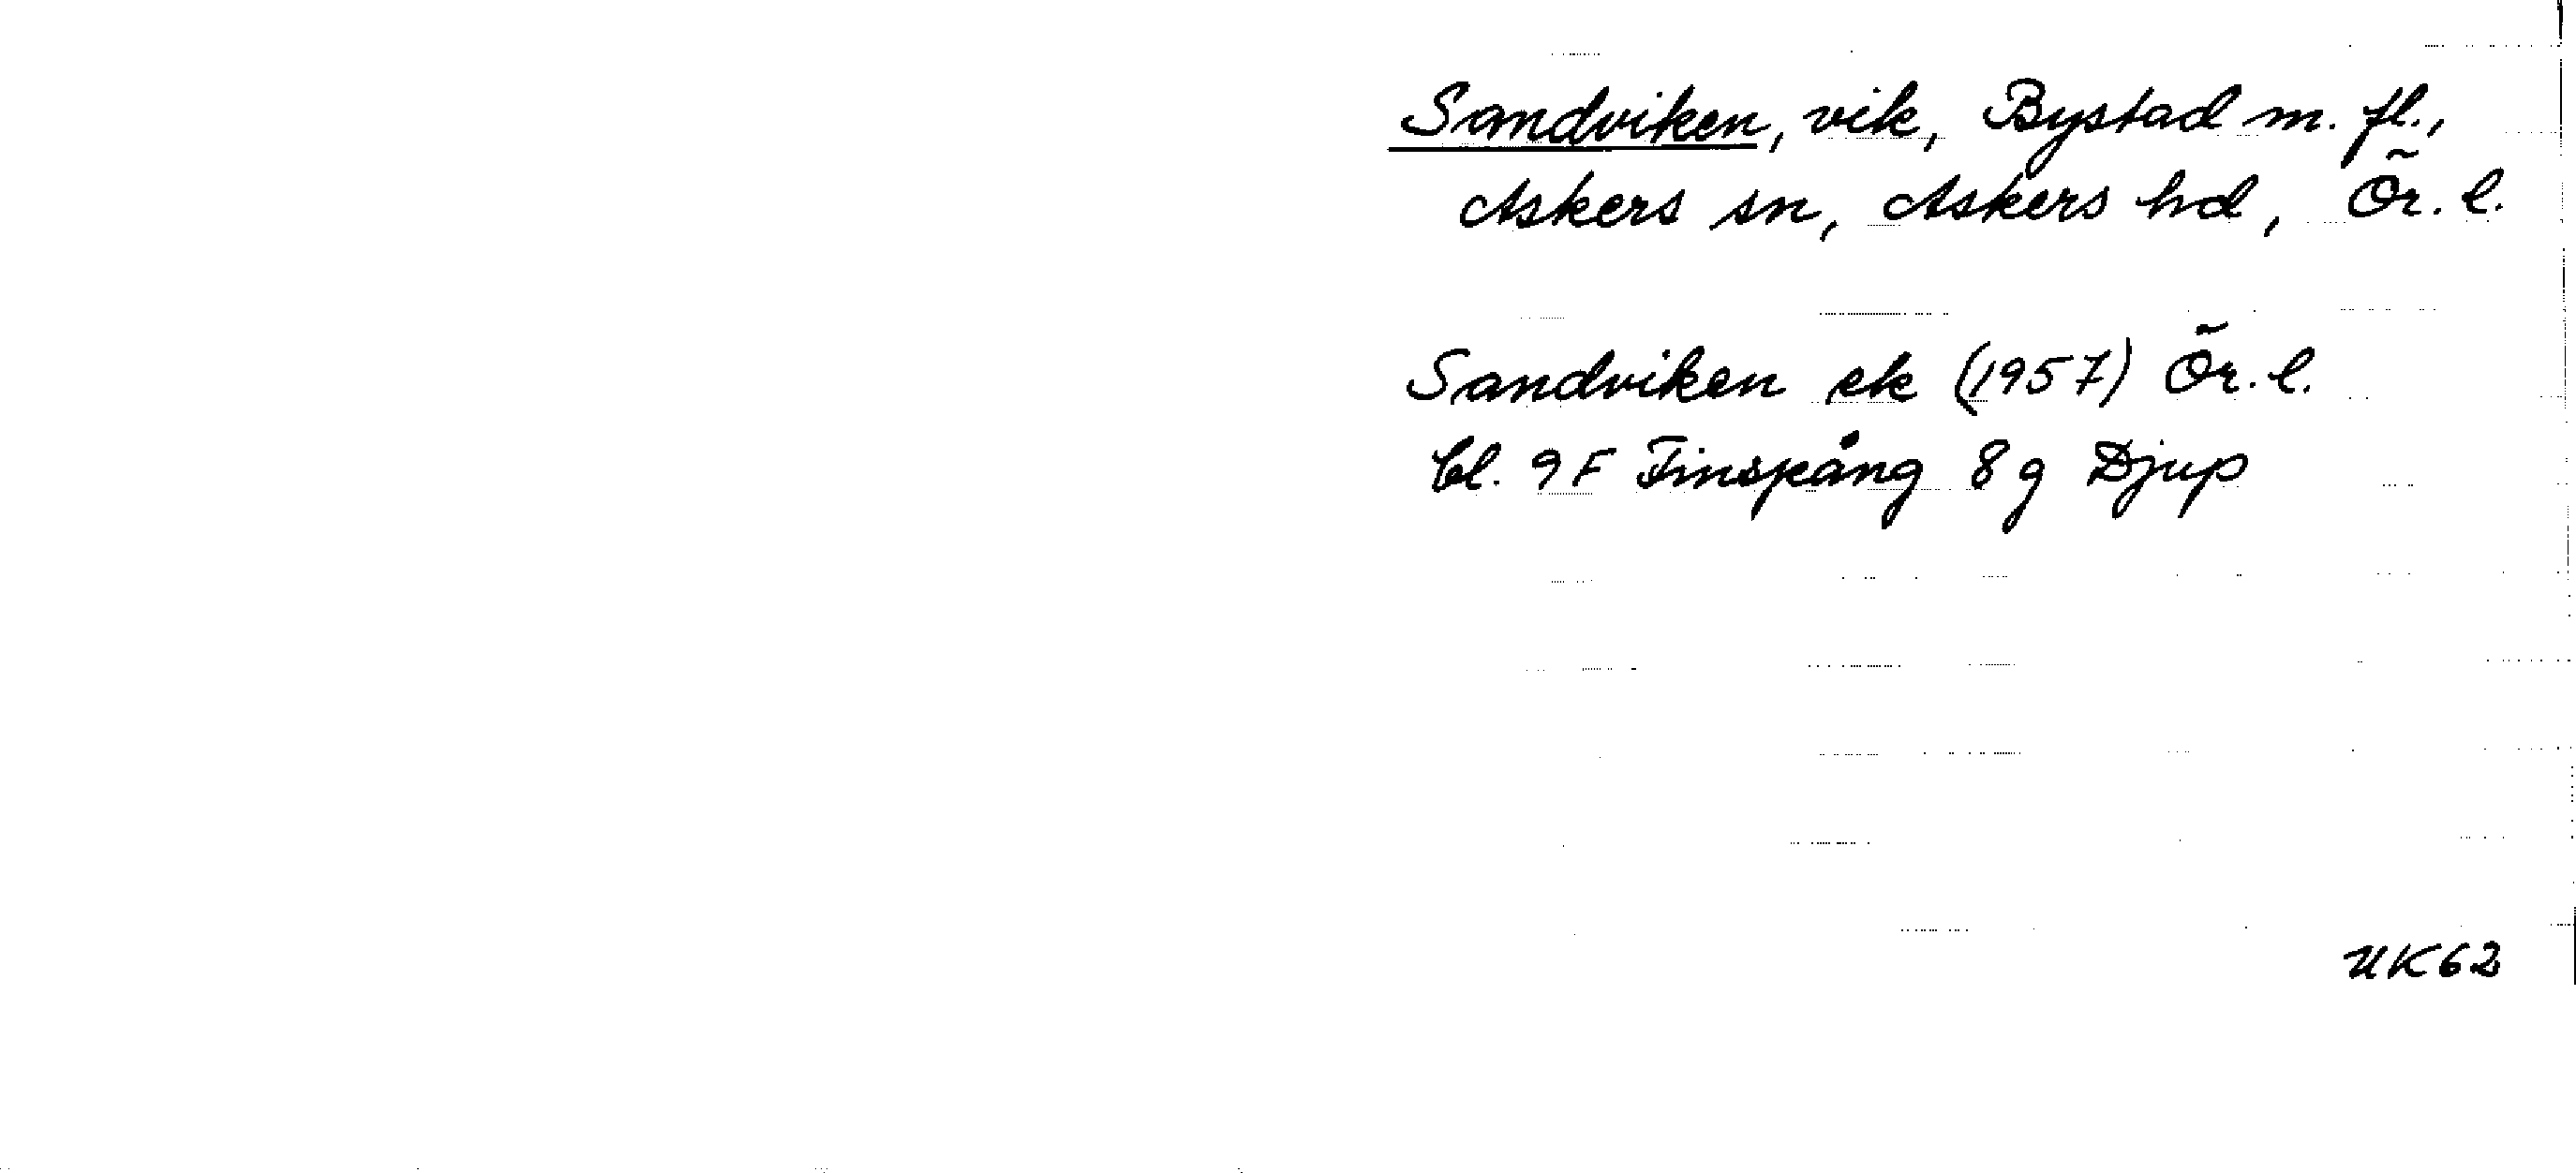 Sandviken, vik, Bystad m. fl.,
Askers sn, Askers hd, Ör. l.
Sandviken ek (1957) Ör. l.
bl. 9F Finspång 8g Djup
UK62